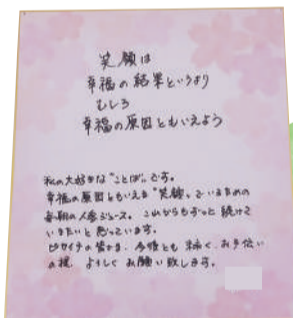 笑顔は
幸福の結果というより
むしろ
幸福の原因ともいえよう
私の大好きな"ことば"です。
幸福の原因ともいえる"笑顔"でいるための
毎朝の人参ジュース。これからもずっと続けて
いきたいと思っています。
ピカイチの皆さま、今後とも末永くお手伝い
の程、よろしくお願い致します。